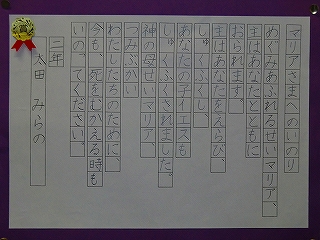 マリアさまへのいのり
めぐみあふれるせいマリア、
主はあなたとともに
おられます。
主はあなたをえらび、
しゅくふくし、
あなたの子イエスも
しゅくふくされました。
神の母せいマリア、
つみぶかい
わたしたちのために、
今も、死をむかえる時も
いのってください。
二年
太田 みらの